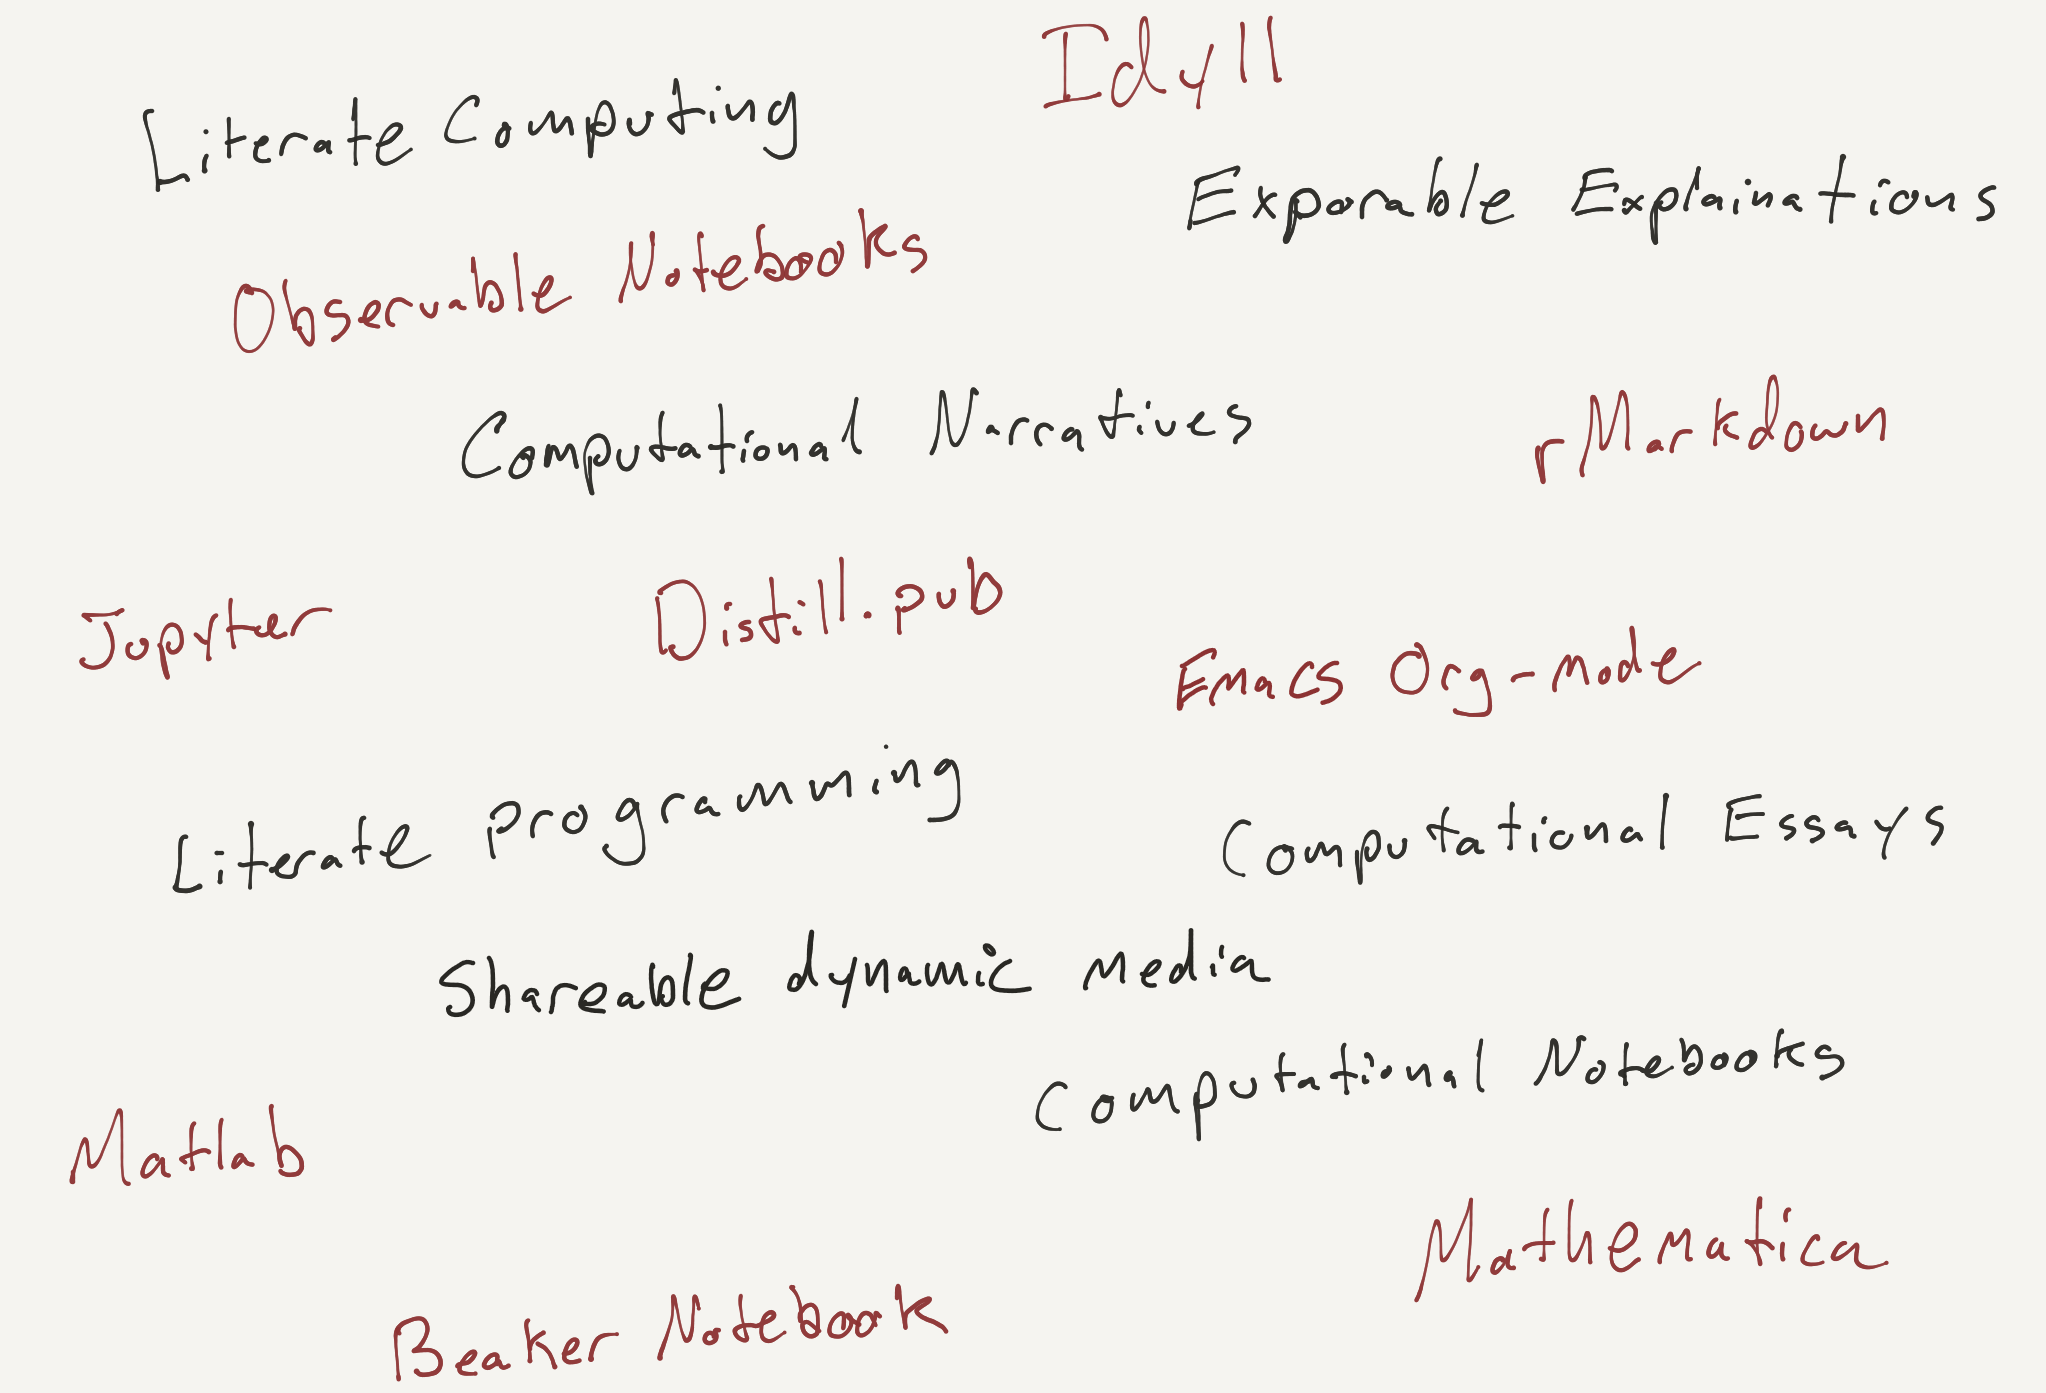 Idyll
Literate Computing
Exporable Explainations
Observable Notebooks
Computational Narratives
rMarkdown
Jupyter
Distill.pub
Emacs Org-mode
Literate programming
Computational Essays
Shareable dynamic media
Computational Notebooks
Matlab
Mathematica
Beaker Notebook